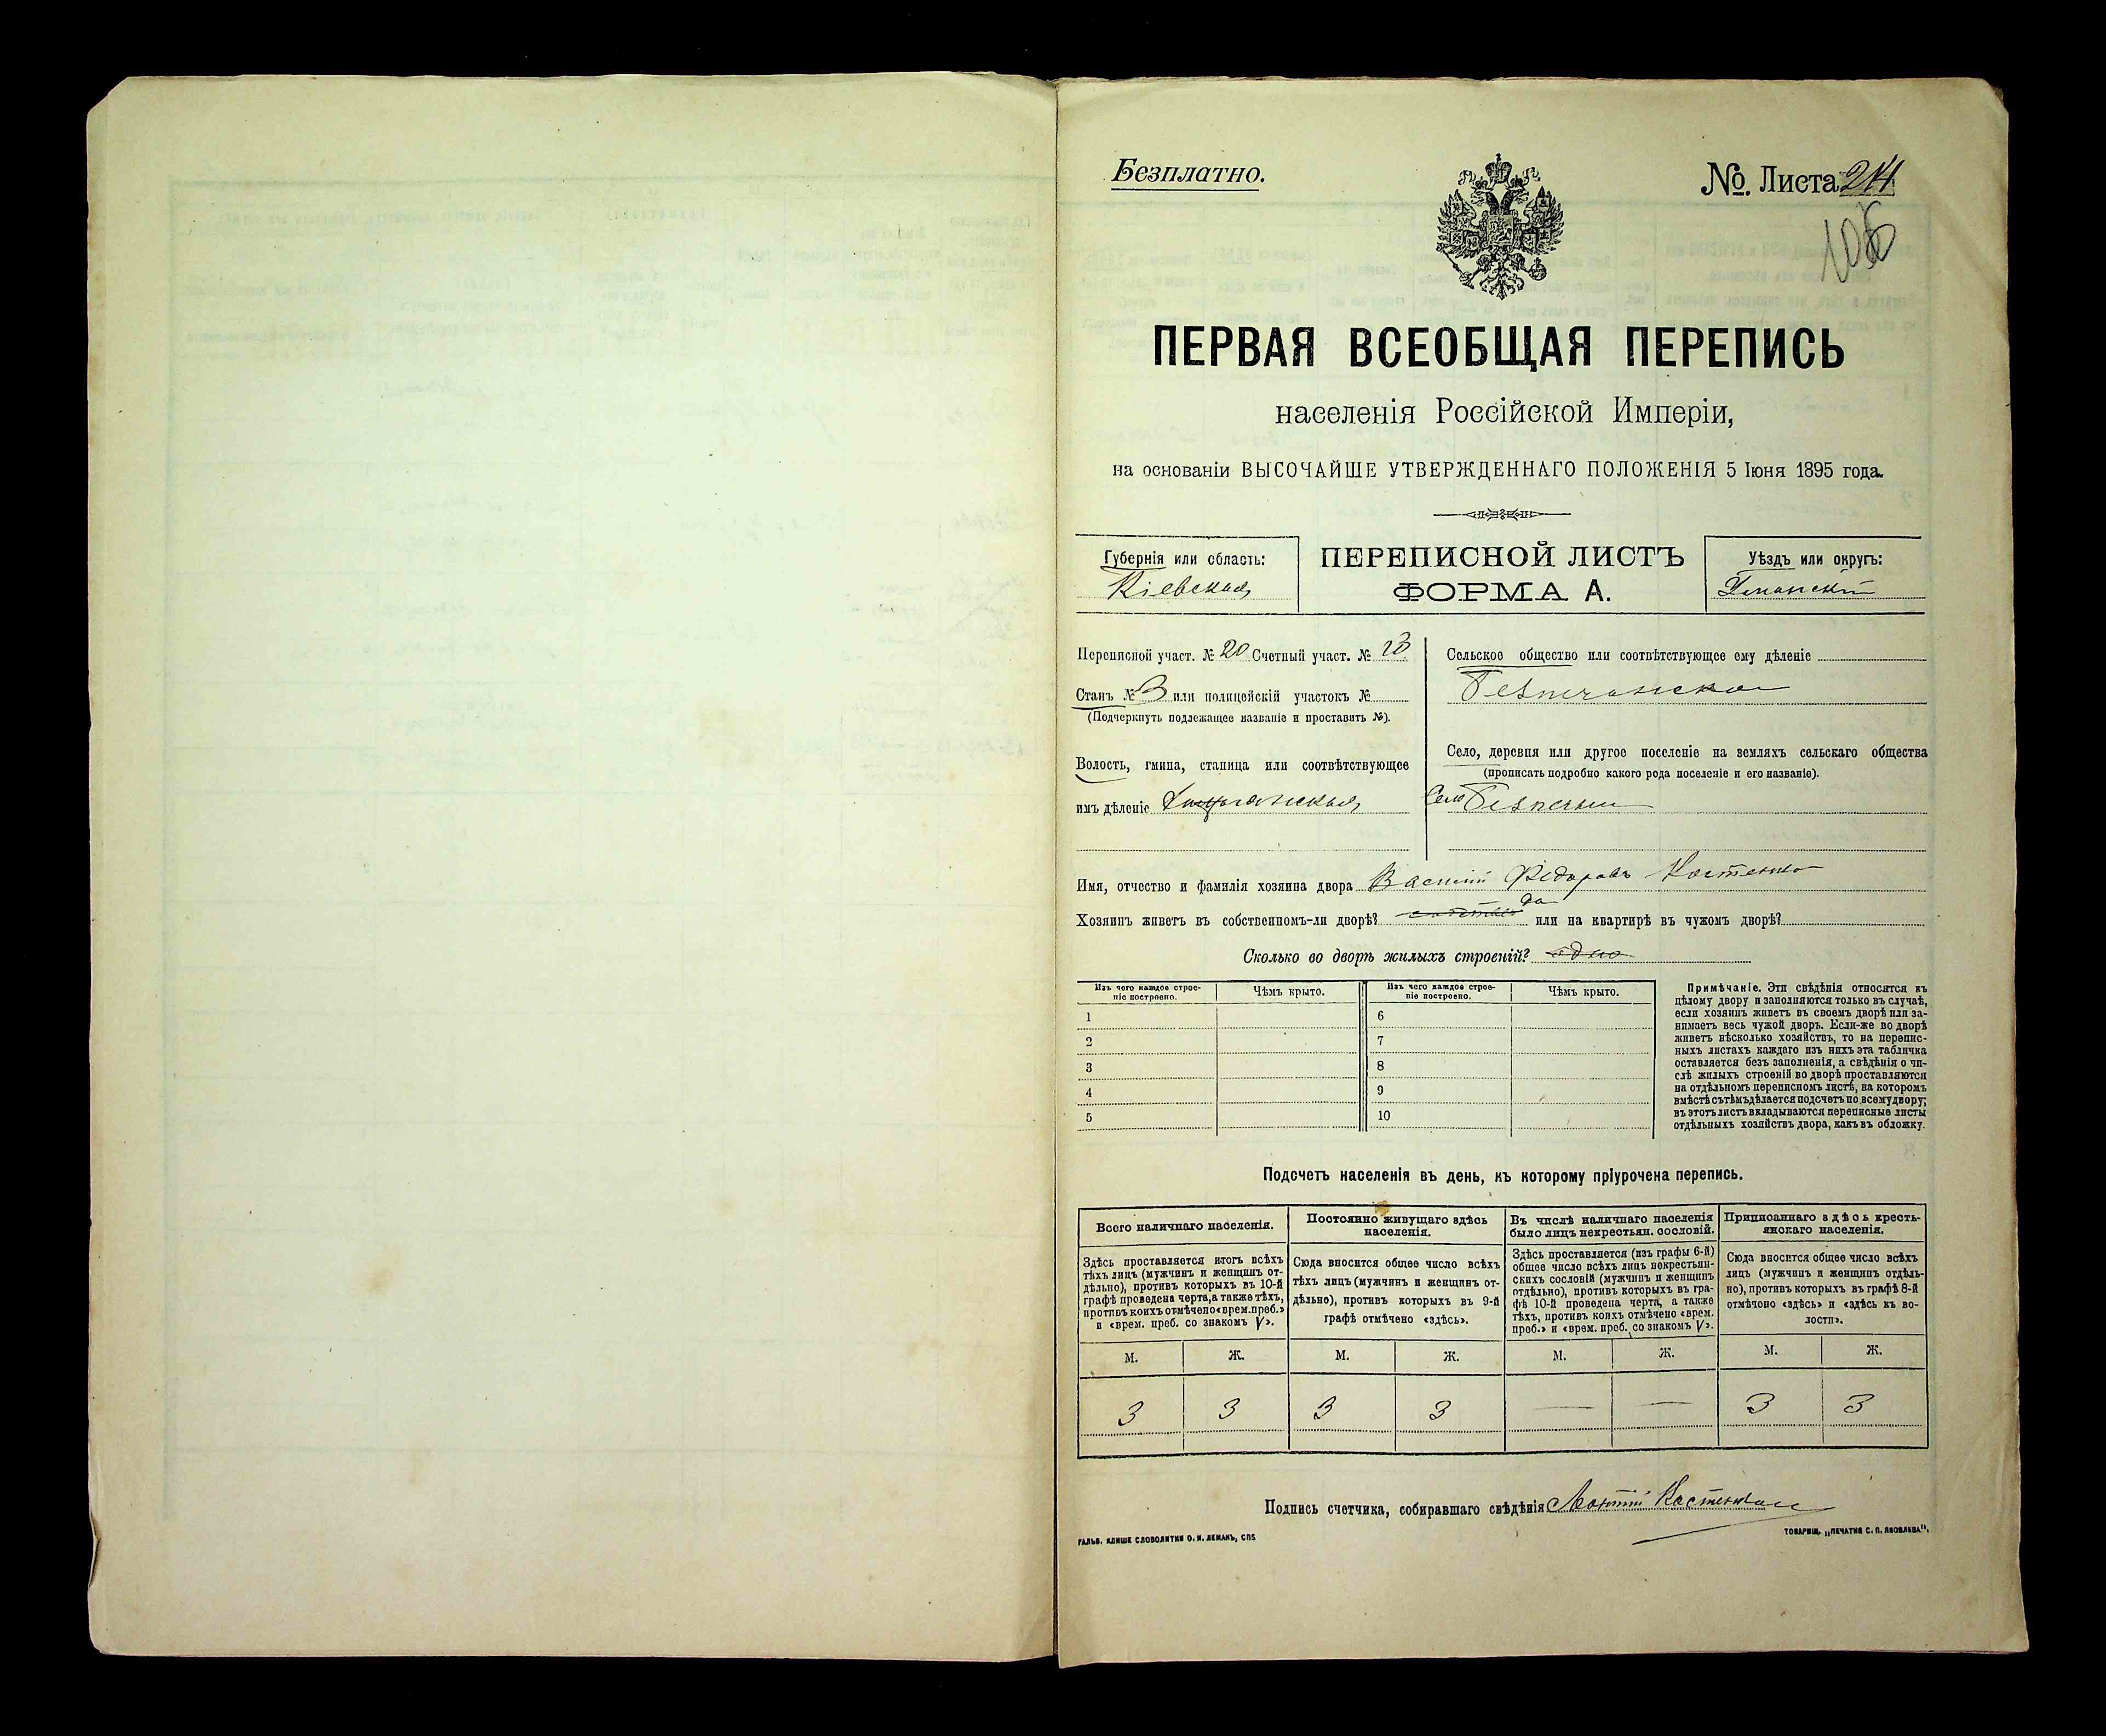 Безплатно.
№ Листа 214
106
ПЕРВАЯ ВСЕОБЩАЯ ПЕРЕПИСЬ
населенія Россійской Имперіи,
на основаніи ВЫСОЧАЙШЕ УТВЕРЖДЕННАГО ПОЛОЖЕНІЯ 5 Іюня 1895 года.
Губернія или область:
Кіевская
ПЕРЕПИСНОЙ ЛИСТЪ
ФОРМА А.
Уѣздъ или округъ:
Уманскій
Переписной участ. № 20 Счетный участ. № 13
Станъ № 3 или полицейскій участокъ №
(Подчеркнуть подлежащее названіе и проставить №).
Волость, гмина, станица или соотвѣтствующее
имъ дѣленіе
Сельское общество или соотвѣтствующее ему дѣленіе
Село, деревня или другое поселеніе на земляхъ сельскаго общества
(прописать подробно какого рода поселеніе и его названіе).
Село
Имя, отчество и фамилія хозяина двора Василій Федоровъ Костенко
Хозяинъ живетъ въ собственномъ-ли дворѣ? да или на квартирѣ въ чужомъ дворѣ?
Сколько во дворѣ жилыхъ строеній? одно
Изъ чего каждое строе-
ніе построено.
Чѣмъ крыто.
Изъ чего каждое строе-
ніе построено.
Чѣмъ крыто.
1
2
3
4
5
6
7
8
9
10
Примѣчаніе. Эти свѣдѣнія относятся къ
цѣлому двору и заполняются только въ случаѣ,
если хозяинъ живетъ въ своемъ дворѣ или за-
нимаетъ весь чужой дворъ. Если-же во дворѣ
живетъ нѣсколько хозяйствъ, то на перепис-
ныхъ листахъ каждаго изъ нихъ эта табличка
оставляется безъ заполненія, а свѣдѣнія о чи-
слѣ жилыхъ строеній во дворѣ проставляются
на отдѣльномъ переписномъ листѣ, на которомъ
вмѣстѣ съ тѣмъ дѣлается подсчетъ по всему двору;
въ этотъ листъ вкладываются переписные листы
отдѣльныхъ хозяйствъ двора, какъ въ обложку.
Подсчетъ населенія въ день, къ которому пріурочена перепись.
Всего наличнаго населенія.
Здѣсь проставляется итогъ всѣхъ
тѣхъ лицъ (мужчинъ и женщинъ от-
дѣльно), противъ которыхъ въ 10-й
графѣ проведена черта, а также тѣхъ,
противъ коихъ отмѣчено «врем. преб.»
и «врем. преб. со знакомъ V».
Постоянно живущаго здѣсь
населенія.
Сюда вносится общее число всѣхъ
тѣхъ лицъ (мужчинъ и женщинъ от-
дѣльно), противъ которыхъ въ 9-й
графѣ отмѣчено «здѣсь».
Въ числѣ наличнаго населенія
было лицъ некрестьян. сословій.
Здѣсь проставляется (изъ графы 6-й)
общее число всѣхъ лицъ некрестьян-
скихъ сословій (мужчинъ и женщинъ
отдѣльно), противъ которыхъ въ гра-
фѣ 10-й проведена черта, а также
тѣхъ, противъ коихъ отмѣчено «врем.
преб.» и «врем. преб. со знакомъ V».
Приписаннаго здѣсь кресть-
янскаго населенія.
Сюда вносится общее число всѣхъ
лицъ (мужчинъ и женщинъ отдѣль-
но), противъ которыхъ въ графѣ 8-й
отмѣчено «здѣсь» и «здѣсь къ во-
лости».
М. Ж. М. Ж. М. Ж. М. Ж.
3 3 3 3 — — 3 3
Подпись счетчика, собиравшаго свѣдѣнія
ГАЛЬВ. КЛИШЕ СЛОВОЛИТНИ О. И. ЛЕМАНЪ, СПБ
ТОВАРИЩ. „ПЕЧАТНЯ С. П. ЯКОВЛЕВА".